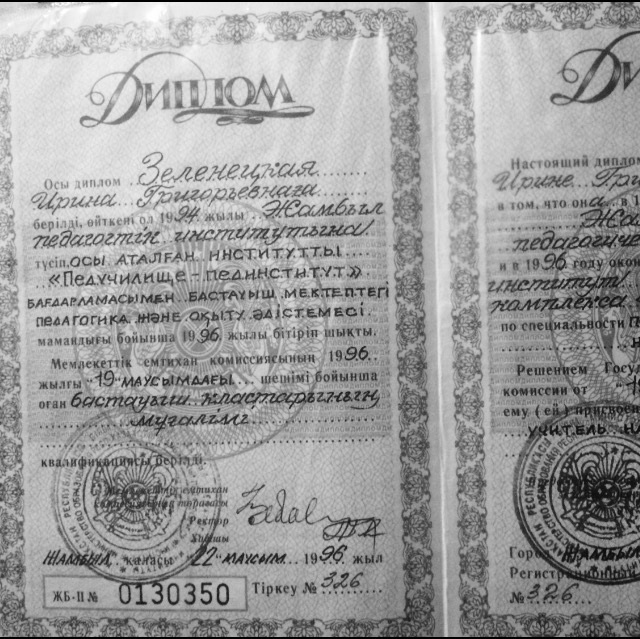 ДИПЛОМ
Осы диплом Зеленецкая
Ирина Григорьевнаға
берілді, өйткені ол 1994 жылы Жамбыл
педагогтік институтына
түсіп, осы аталған институтты
«Педучилище - пединститут»
бағдарламасымен бастауыш мектептегі
педагогика және оқыту әдістемесі
мамандығы бойынша 1996 жылы бітіріп шықты.
Мемлекеттік емтихан комиссиясының 1996
жылғы "19" маусымдағы шешімі бойынша
оған бастауыш кластарының
мұғалімі
квалификациясы берілді.
Мемлекеттік емтихан
комиссиясының төрағасы
Ректор
Хатшы
Жамбыл қаласы 22 маусым 1996 жыл
ЖБ-II № 0130350 Тіркеу № 326
Настоящий диплом
Ирине
в том, что она в
педагогиче
и в 1996 году око
институт
комплекса
по специальности
Решением Госу
комиссии от
ему (ей) присвое
учитель на
Город Жамбы
Регистрационный
№ 326